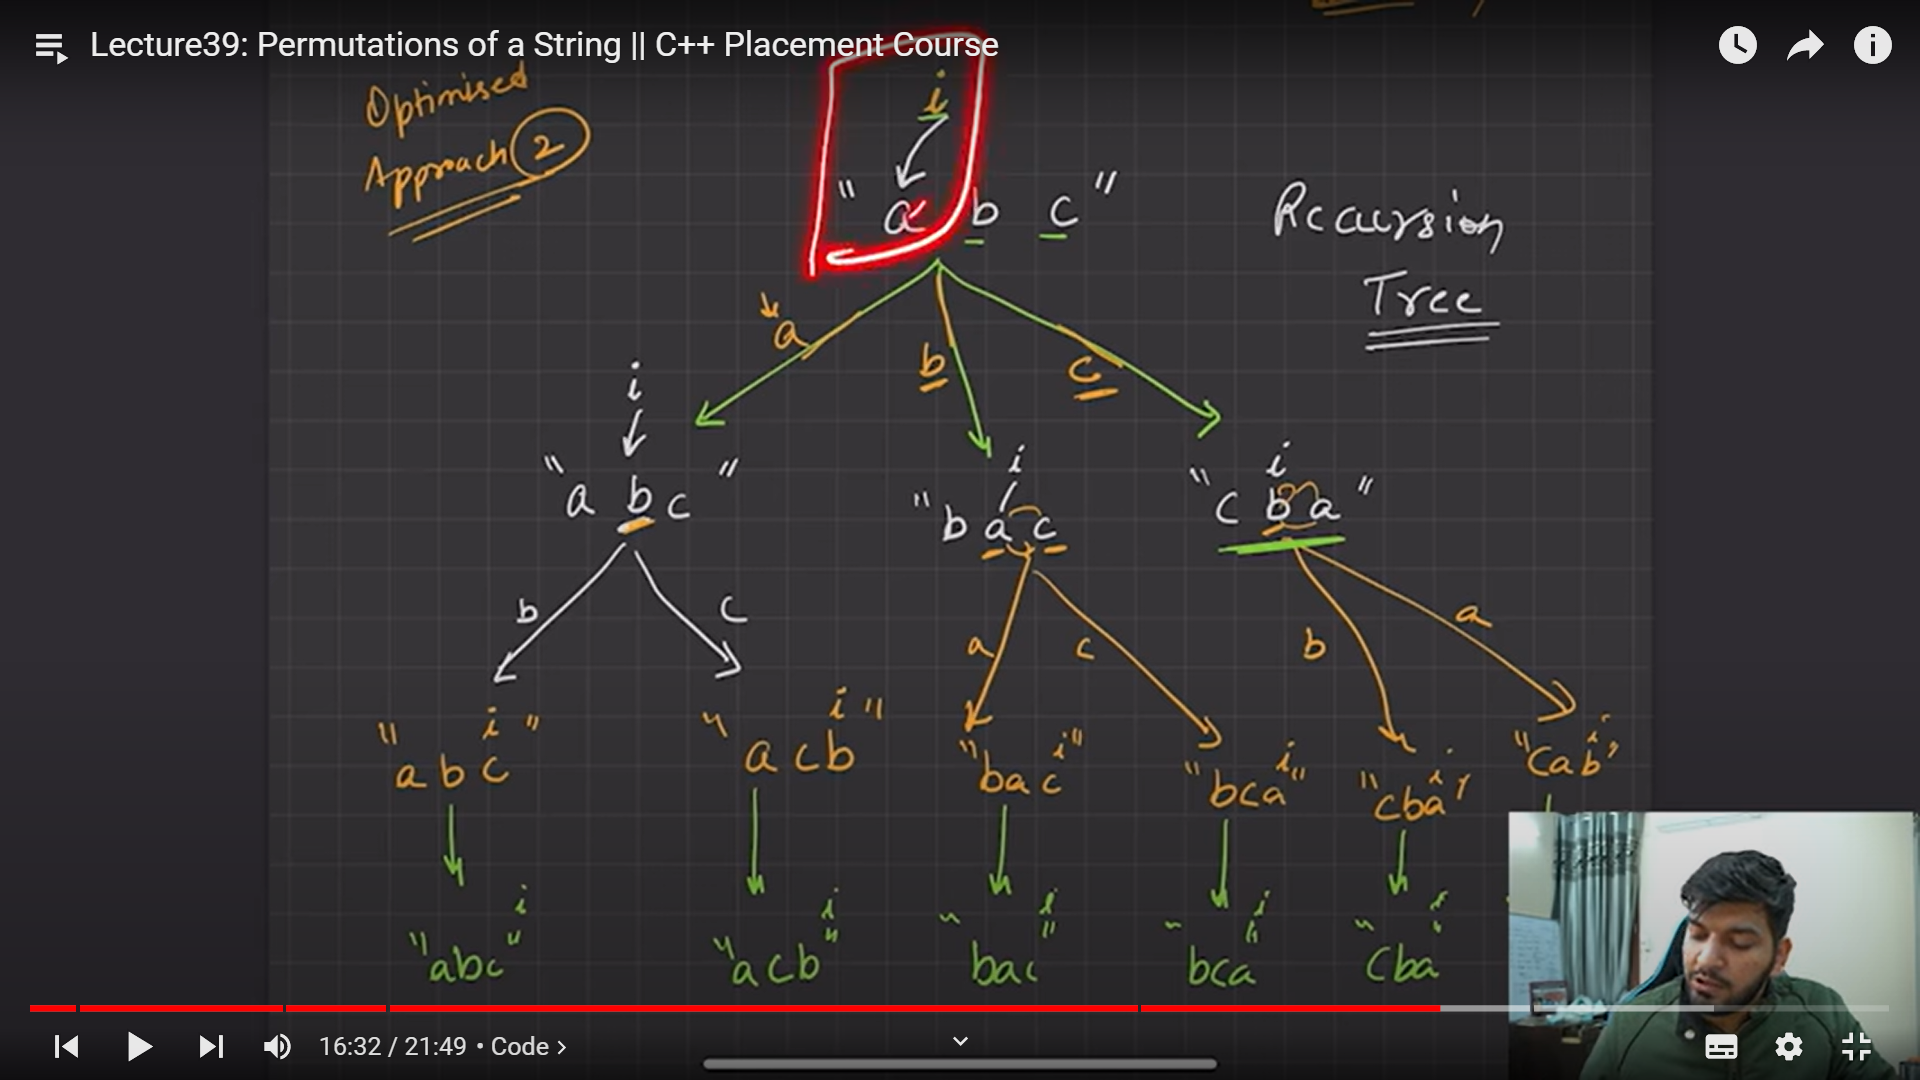 Lecture39: Permutations of a String || C++ Placement Course
Optimised
Approach 2
i
" a b c "
Recursion
Tree
a b c
i i i
" a b c " " b a c " " c b a "
b c a c b a
i i i i i i
" a b c " " a c b " " b a c " " b c a " " c b a " " c a b "
i i i i i
" a b c " " a c b " " b a c " " b c a " " c b a "
16:32 / 21:49 • Code >